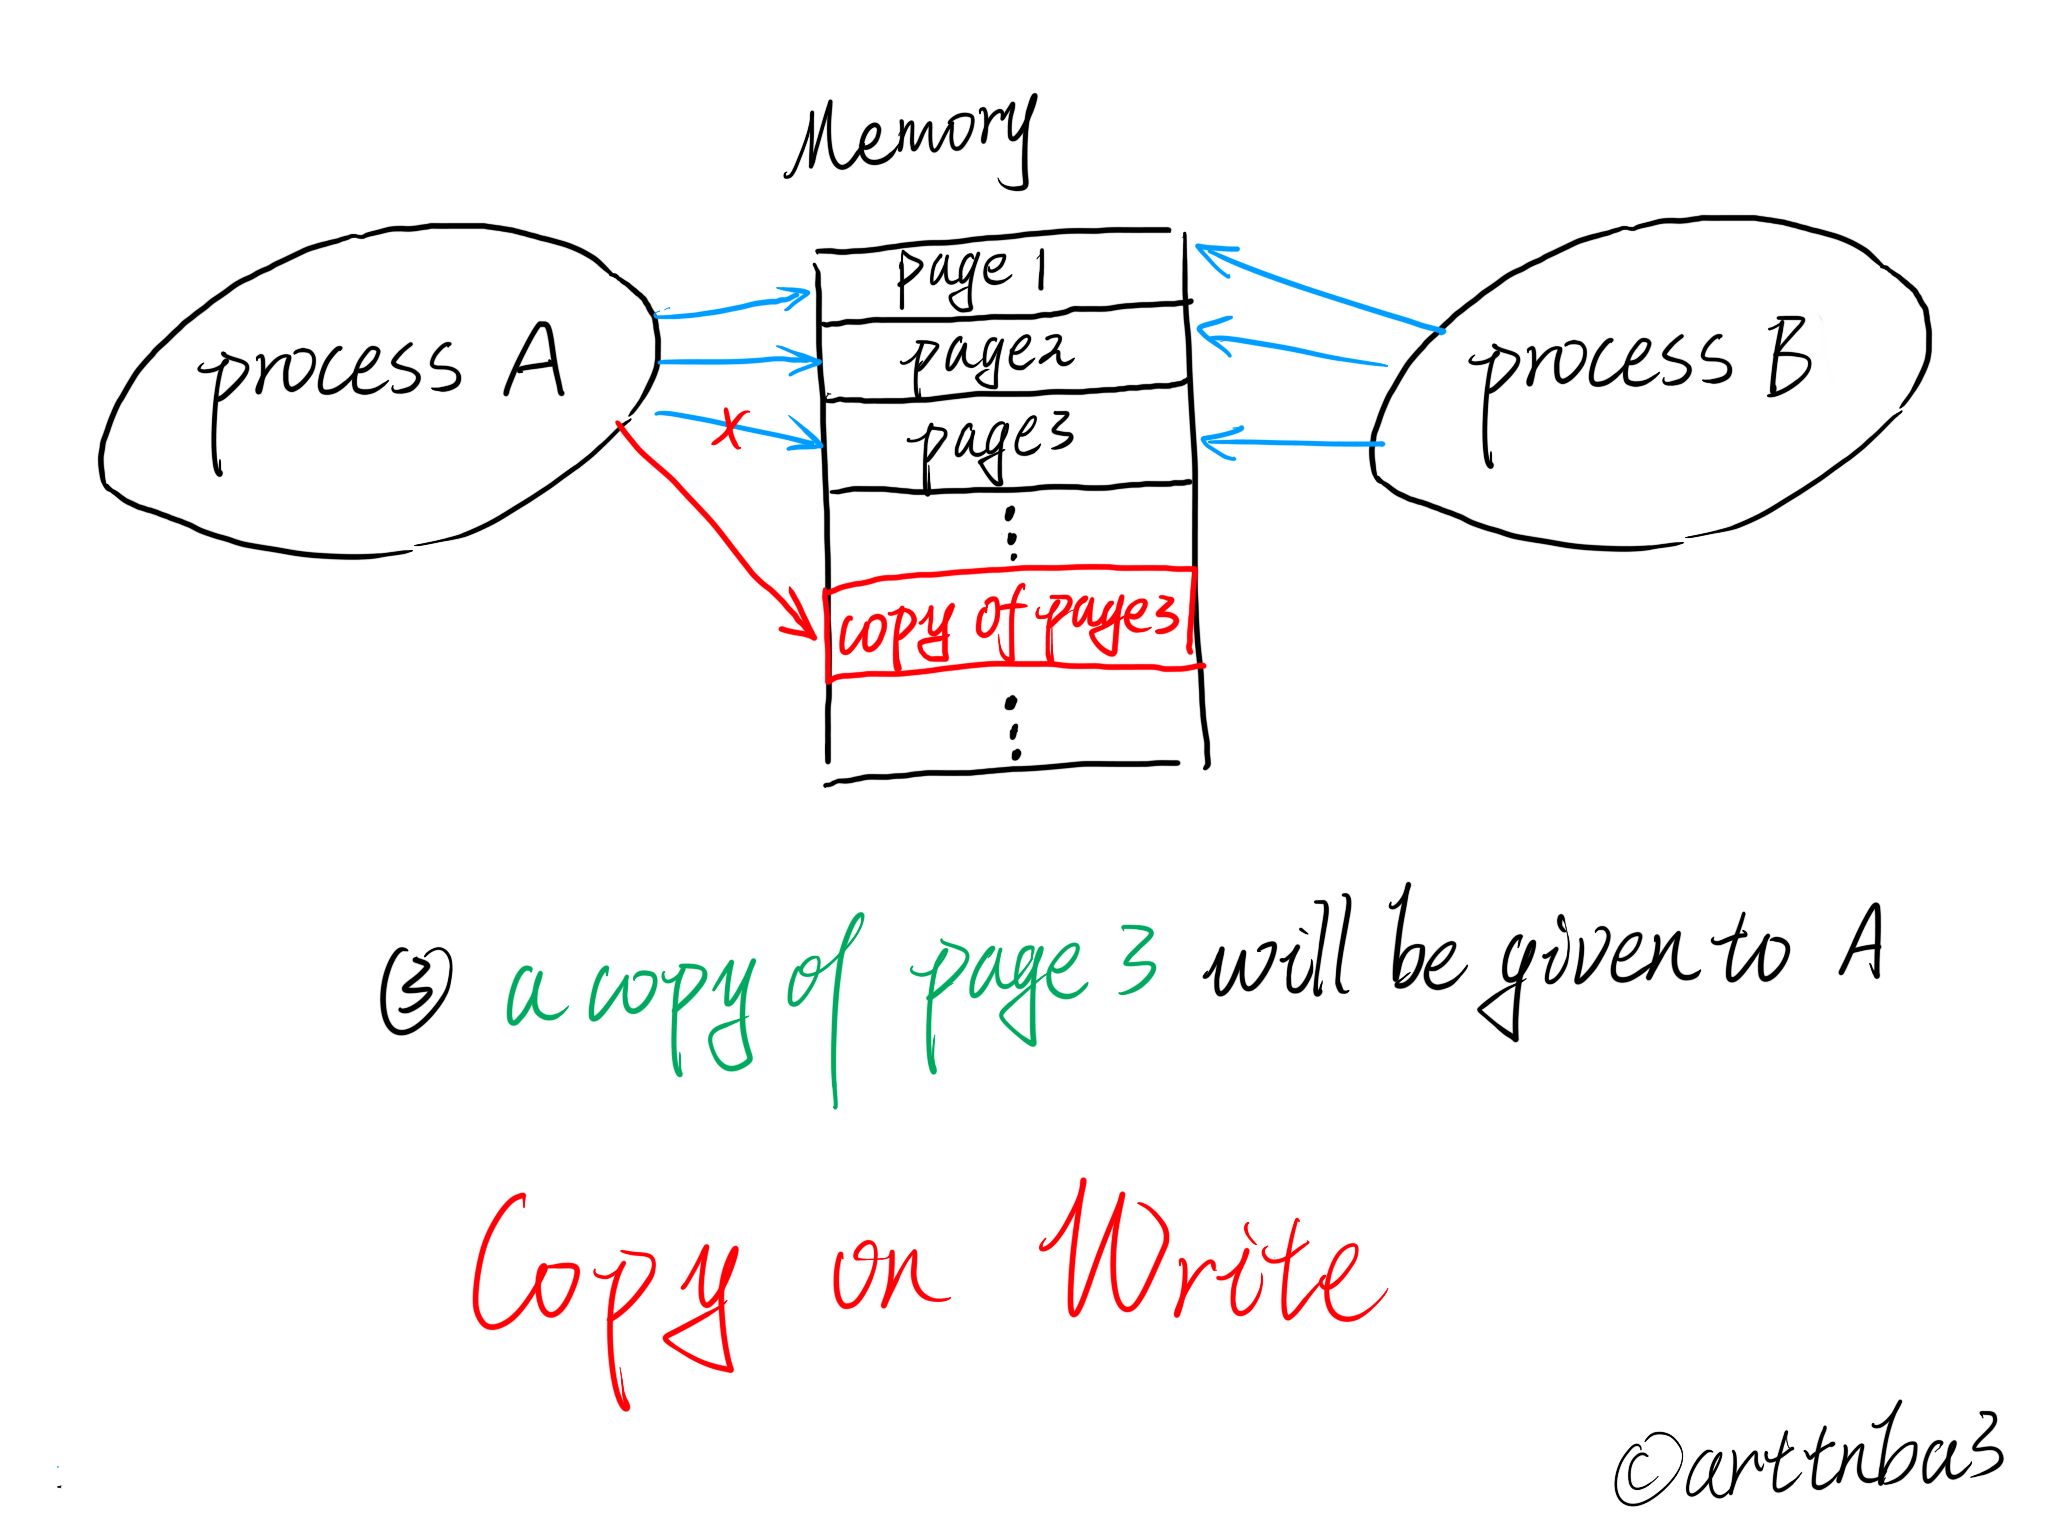 Memory
process A
page 1
page2
page3
copy of page3
process B
③ a copy of page 3 will be given to A
Copy on Write
©arttnba3